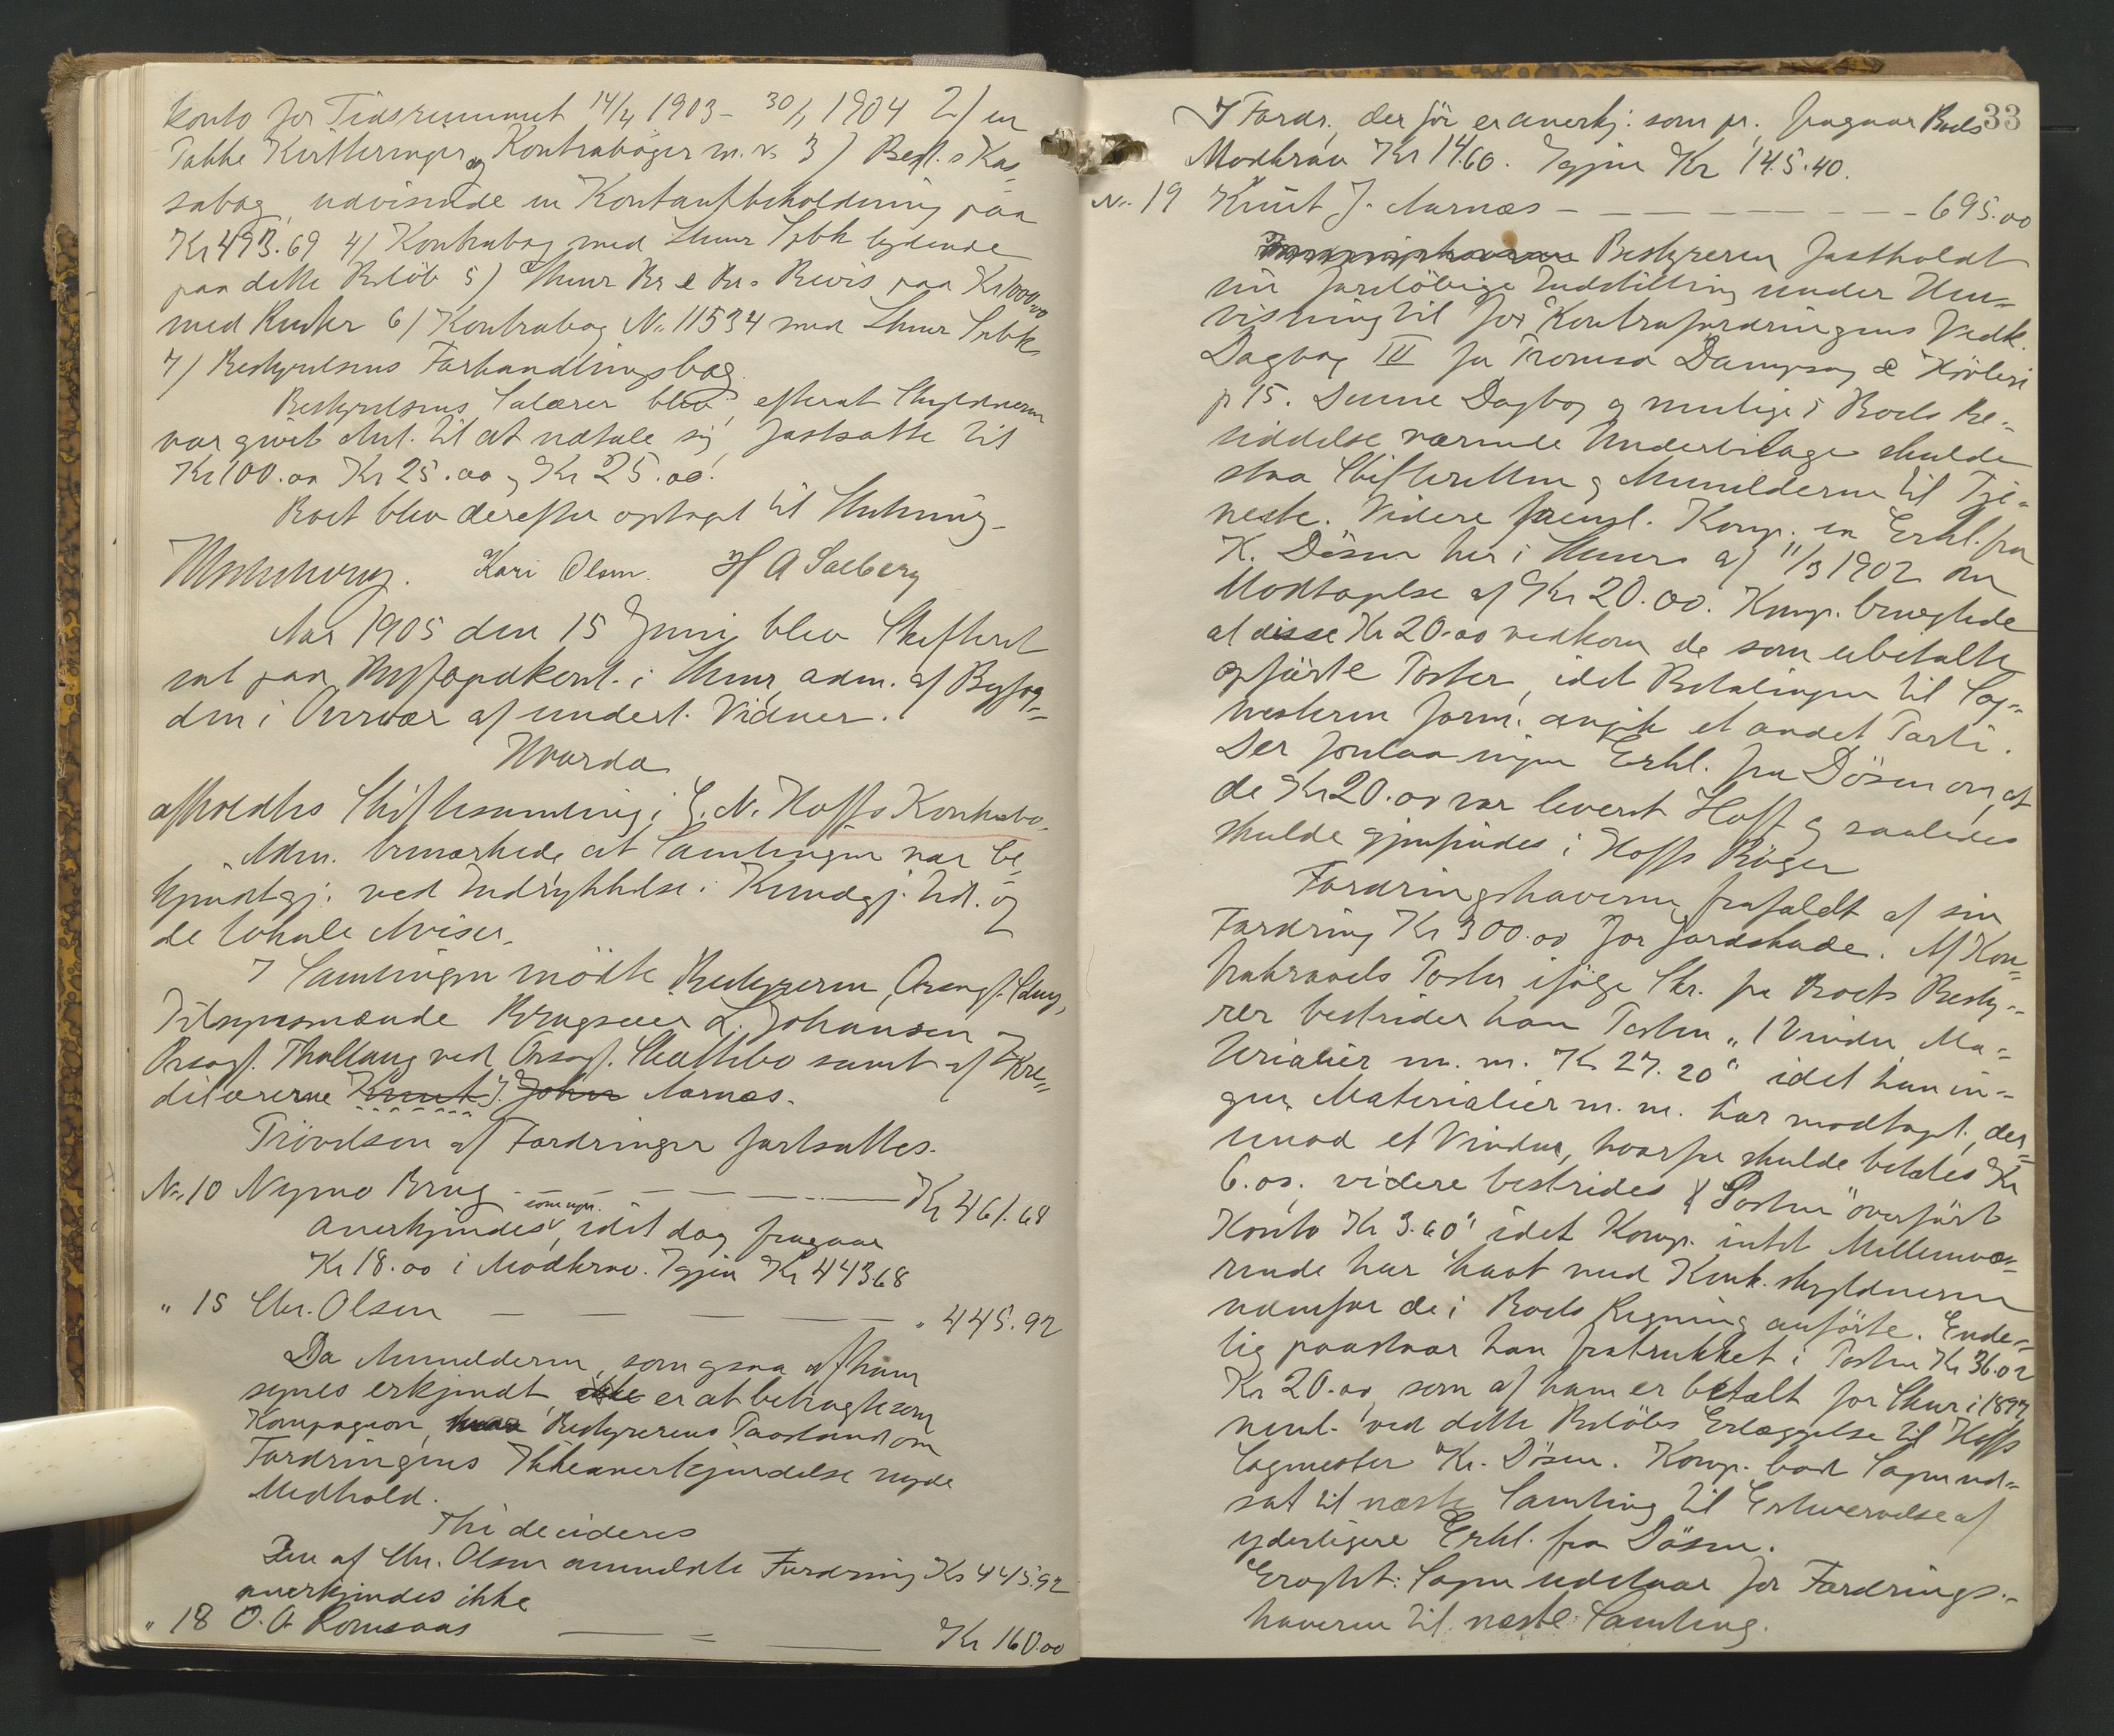 Konto for Tidsrummet 14/4 1903 - 30/1 1904 2) en
Pakke Kvitteringer og Kontrabøger m.v. 3) Best.s Kas-
sabog, udvisende en Kontantbeholdning paa
Kr 493.69 4) Kontrabog med Spbk lydende
paa dette Beløb 5) Br & Bevis paa Kr 1000.00
med Renter 6) Kontrabog No 11534 med Spbk
7) Bestyrelsens Forhandlingsbog.
Bestyrelsens Salærer blev, efterat Skyldneren
var givet Anl. til at udtale sig, fastsatte til
Kr 100.00 Kr 25.00 og Kr 25.00.
Boet blev derefter optaget til Slutning.
Kari Olsen. H A Salberg
Aar 1905 den 15 Juni blev Skifteret
sat paa Byfogdkont. i adm. af Byfog-
den i Overvær af undert. Vidner.
Hvorda
afholdtes Skiftesamling i C. N. Hoffs Konkursbo.
Adm. bemærkede at Samlingen var be-
kjendtgj. ved Indrykkelse i Kundgj. Tid. og
de lokale Aviser.
I Samlingen mødte Bestyreren, Overrsagf.
Tilsynsmændene Brugseier L. Johansen og
Orsagf. Thallaug ved Orsagf. samt af Kre-
ditorerne Knut J. John Aarnæs.
Prøvelsen af Fordringer fortsattes.
No 10 Nymo Brug - - - Kr 461.68
anerkjendes som upr., idet dog fragaar
Kr 18.00 i Modkrav. Igjen Kr 443.68
" 15 Chr. Olsen - - - " 445.92
Da Anmelderen, som ogsaa af ham
synes erkjendt, ikke er at betragte som
Kompagnon, Bestyrerens Paastand om
Fordringens Ikkeanerkjendelse nyde
Medhold.
Thi decideres
Den af Chr. Olsen anmeldte Fordring Kr 445.92
anerkjendes ikke
" 18 O. A. Romsaas - - - Kr 160.00
33
I Fordr., der før er anerkj. som pr., fragaar Boets
Modkrav Kr 14.60. Igjen Kr 145.40.
No 19 Knut J. Aarnæs - - - 695.00
Bestyreren fastholdt
sin foreløbige Indstilling under Hen-
visning til for Kontrafordringens Vedk.
Dagbog III for Tromsa Dampsag & Høvleri
p 15. Denne Dagbog og mulige i Boets Be-
siddelse værende Underbilage skulde
staa Skifteretten og Anmelderen til Tje-
neste. Videre freml. Komp. en Erkl. fra
K. Døsen her i af 11/3 1902 om
Modtagelse af Kr 20.00. Komp. benegtede
at disse Kr 20.00 vedkom de som ubetalte
opførte Poster, idet Betalingen til Sag-
mesteren form. angik et andet Parti.
Der forelaa ingen Erkl. fra Døsen om, at
de Kr 20.00 var leveret Hoff og saaledes
skulde gjenfindes i Hoffs Bøger
Fordringshaveren frafaldt af sin
Fordring Kr 300.00 for Jordskade. Af Kon-
trakravets Poster ifølge Skr. fra Boets Besty-
rer bestrider han Posten "1 Vindu, Ma-
terialier m. m. Kr 27.20" idet han in-
gen Materialier m. m. har modtaget, der-
imod et Vindu, hvorfor skulde betales Kr
6.00. videre bestrides Posten "overført
Konto Kr 3.60" idet Komp. intet Mellemvæ-
rende har havt med Konk. skyldneren
udenfor de i Boets Regning anførte. Ende-
lig paastaar han fratrukket i Posten Kr 36.02
Kr 20.00, som af ham er betalt for Skur i 1897,
neml. ved dette Beløbs Erlæggelse til Hoffs
Sagmester Kr. Døsen. Komp. bad Sagen ud-
sat til næste Samling til Erhvervelse af
yderligere Erkl. fra Døsen.
Eragtet: Sagen udstaar for Fordrings-
haveren til næste Samling.